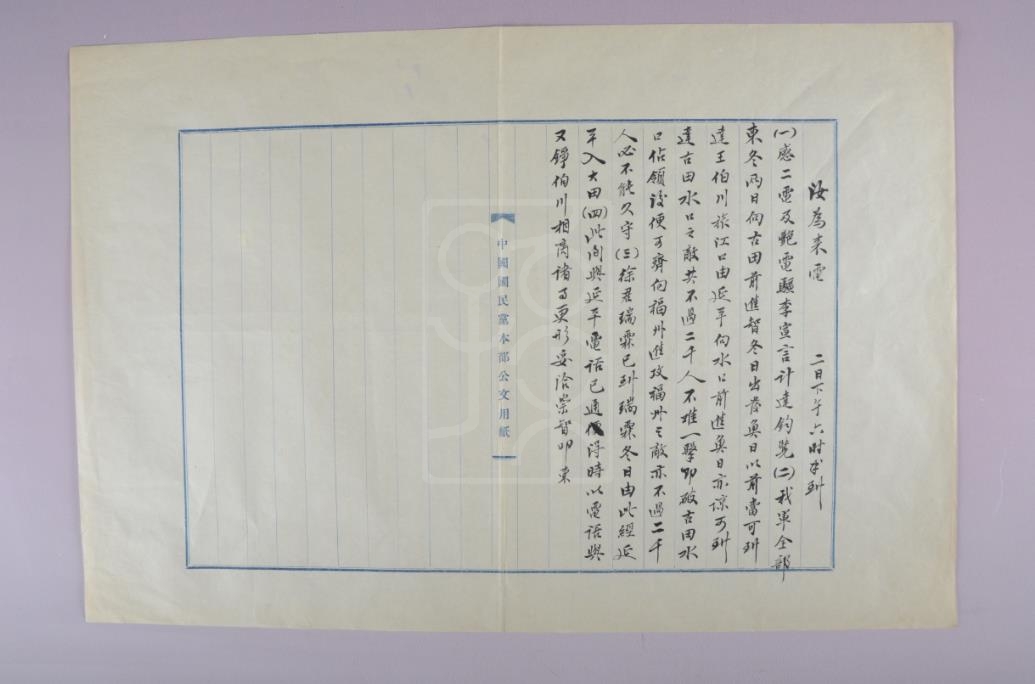 汝為来電　二日下午六时半到
(一)感二電及艷電驗李宣言计達鈞覧(二)我軍全部
東冬両日向古田前進智冬日出發奐日以前當可到
達王伯川旅江口由延平向水口前進奐日亦諒可到
達古田水口之敵共不過二千人不堆一擊即破古田水
口佔領後便可齊向福州進攻福州之敵亦不過二千
人必不能久守(三)徐君瑞霖已到瑞霖冬日由此經延
平入大田(四)此间與延平電话已通得時以電话與
又錚伯川相商诸事更形妥洽崇智叩東
中國國民黨本部公文用紙